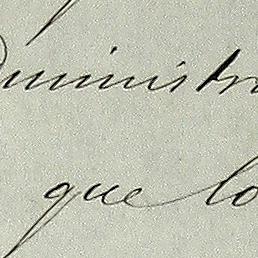 Administr
que lo